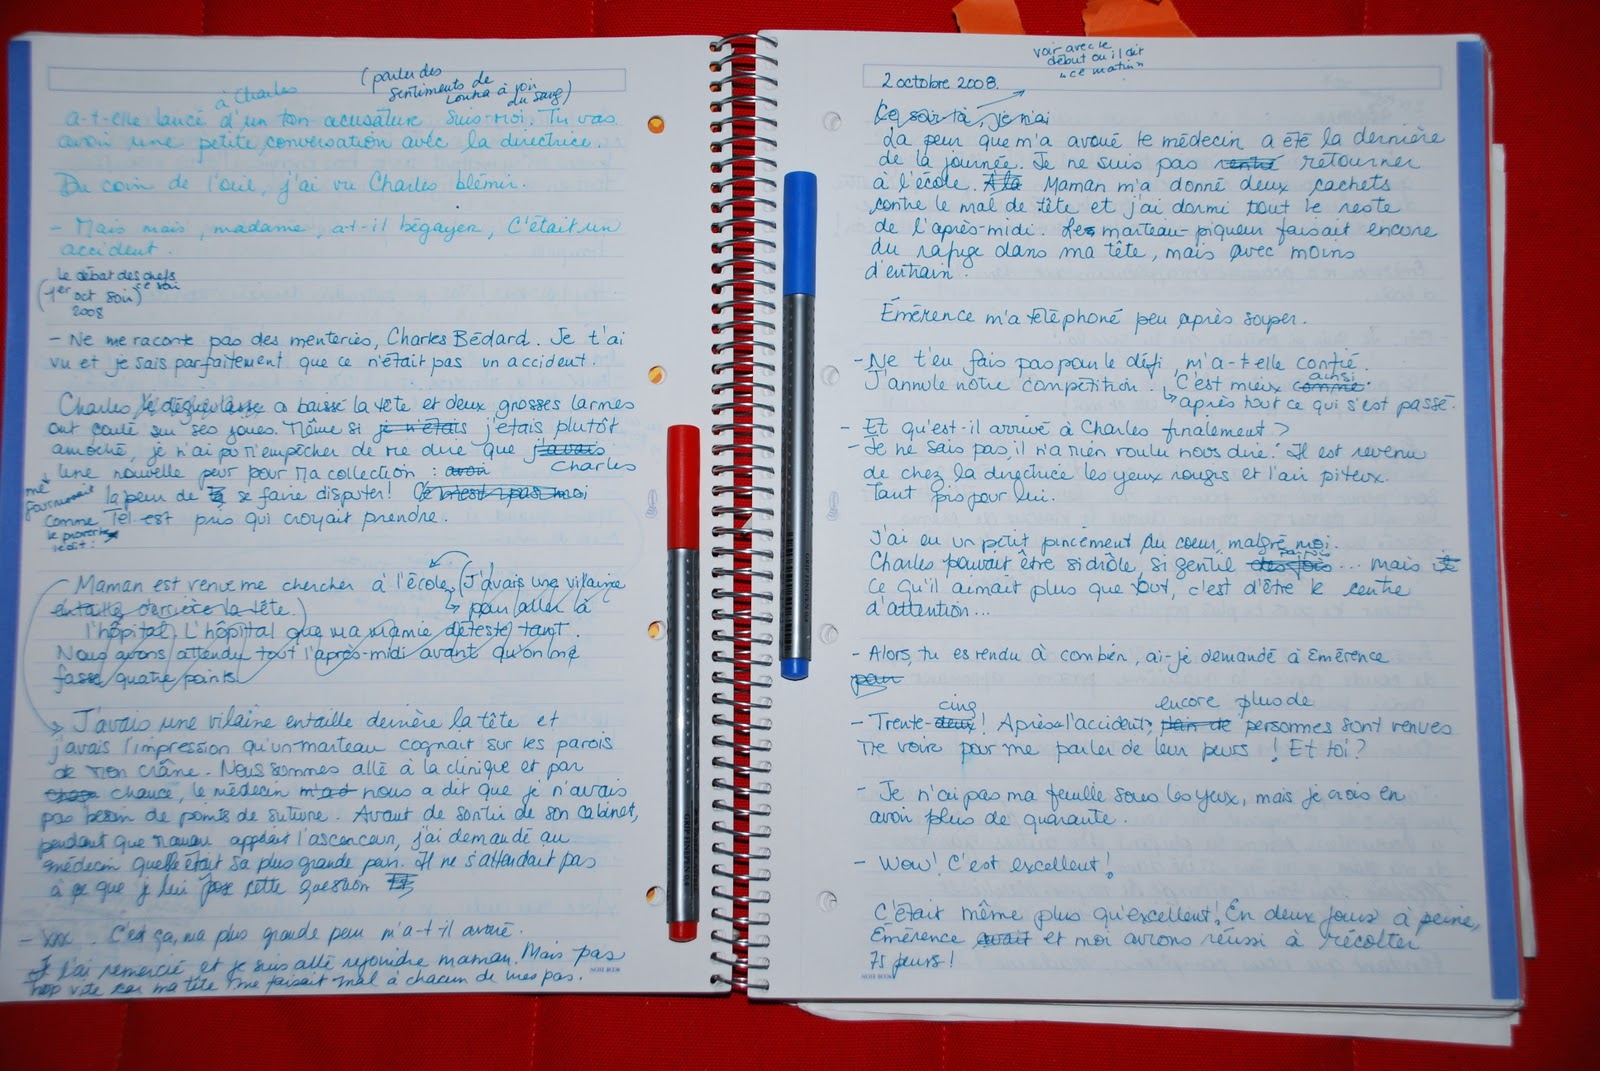 (parler des
sentiments de
Louka à voir
du sang)
à Charles
a-t-elle lancé d'un ton accusateur. Suis-moi. Tu vas
avoir une petite conversation avec la directrice.
Du coin de l'oeil, j'ai vu Charles blêmir.
- Mais mais, madame, a-t-il bégayer, C'était un
accident.
le débat des chefs
ce soir
(1er oct soir)
2008
- Ne me raconte pas des menteries, Charles Bédard. Je t'ai
vu et je sais parfaitement que ce n'était pas un accident.
Charles a baissé la tête et deux grosses larmes
ont coulé sur ses joues. Même si je n'étais j'étais plutôt
amoché, je n'ai pu m'empêcher de me dire que j'avais Charles
me fournissait
une nouvelle peur pour ma collection : avoir
la peur de se faire disputer! Ce n'est pas moi
comme Tel est pris qui croyait prendre.
le proverbe
le dit:
Maman est venue me chercher à l'école (J'avais une vilaine
entaille derrière la tête.) pour aller à
l'hôpital. L'hôpital que ma mamie déteste tant.
Nous avons attendu tout l'après-midi avant qu'on me
fasse quatre points.
J'avais une vilaine entaille derrière la tête et
j'avais l'impression qu'un marteau cognait sur les parois
de mon crâne. Nous sommes allé à la clinique et par
chance, le médecin m'a nous a dit que je n'avais
pas besoin de points de suture. Avant de sortir de son cabinet,
pendant que maman appelait l'ascenceur, j'ai demandé au
médecin quelle était sa plus grande peur. Il ne s'attendait pas
à ce que je lui pose cette question
- xxx. C'est ça, ma plus grande peur m'a-t-il avoué.
Je l'ai remercié et je suis allé rejoindre maman. Mais pas
trop vite car ma tête me faisait mal à chacun de mes pas.
voir avec le
début où il dit
"ce matin"
2 octobre 2008.
Ce soir là, je n'ai
La peur que m'a avoué le médecin a été la dernière
de la journée. Je ne suis pas rentré retourner
à l'école. À la Maman m'a donné deux cachets
contre le mal de tête et j'ai dormi tout le reste
de l'après-midi. Les marteau-piqueur faisait encore
du rafuge dans ma tête, mais avec moins
d'entrain.
Émérence m'a téléphoné peu après souper.
- Ne t'en fais pas pour le défi, m'a-t-elle confié.
J'annule notre compétition. C'est mieux comme ainsi
après tout ce qui s'est passé.
- Et qu'est-il arrivé à Charles finalement?
- Je ne sais pas, il n'a rien voulu nous dire. Il est revenu
de chez la directrice les yeux rouges et l'air piteux.
Tant pis pour lui.
J'ai eu un petit pincement du coeur, malgré moi.
Charles pouvait être si drôle, si gentil des fois parfois... mais
ce qu'il aimait plus que tout, c'est d'être le centre
d'attention...
- Alors, tu es rendu à combien, ai-je demandé à Émérence
cinq encore plus de
- Trente-deux! Après l'accident, plein de personnes sont venues
me voir pour me parler de leur peurs! Et toi?
- Je n'ai pas ma feuille sous les yeux, mais je crois en
avoir plus de quarante.
- Wow! C'est excellent!
C'était même plus qu'excellent! En deux jours à peine,
Émérence avait et moi avions réussi à récolter
75 peurs!